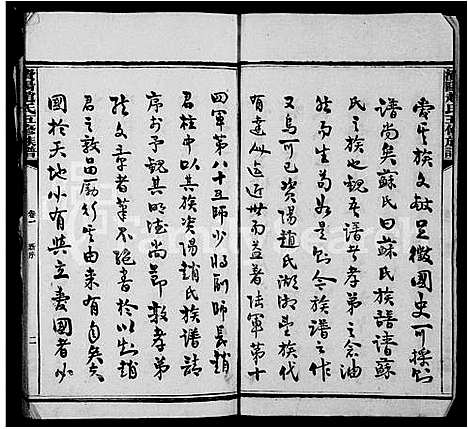 愛其族文獻足徵國史可採則
譜尚矣蘇氏曰蘇氏族譜譜蘇
氏之族也觀吾譜者孝弟之念油
然而生焉如是則今族譜之作
又烏可已資陽趙氏湖湘望族代
有達人近世而益著陸軍第十
四軍第八十五師少將副師長趙
君柱中以其族資陽趙氏族譜請
序於予觀其明德尚節敦孝弟
文章者筆不絕書於以知趙
君之勵行由來有自矣夫
國於天地必有與立愛國者必
資陽趙氏五修族譜
卷一
序
二